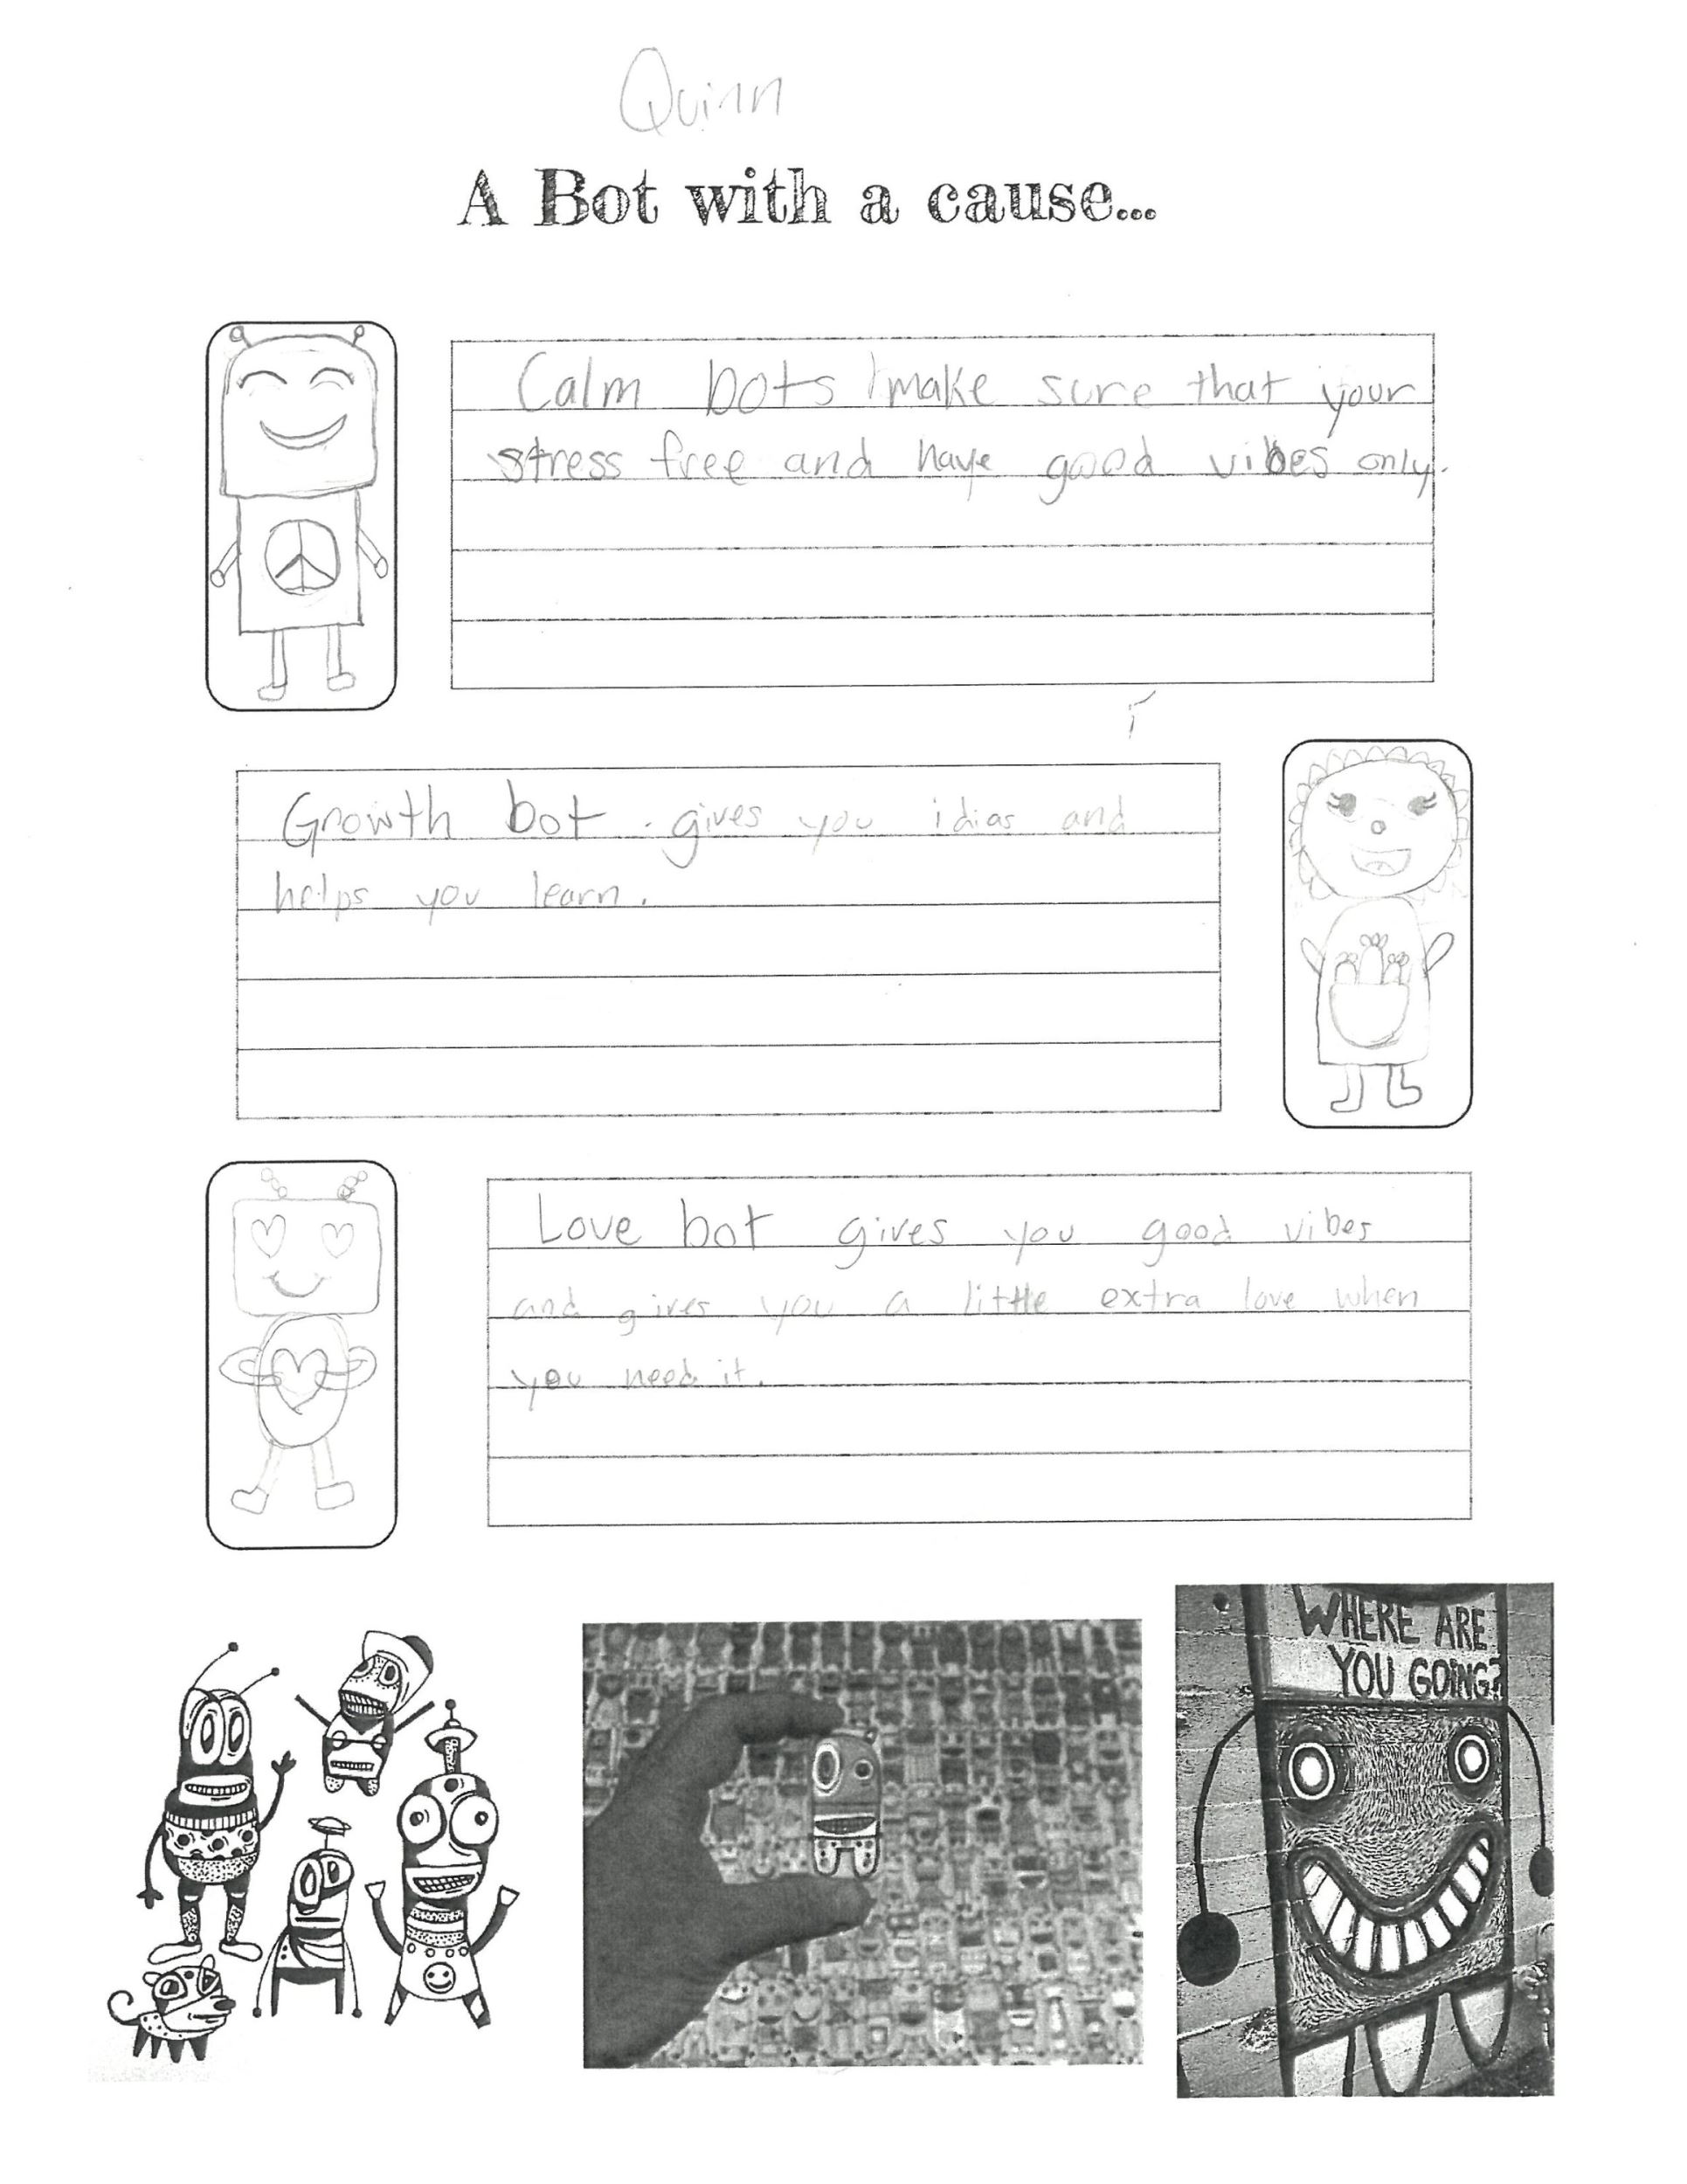 Quinn
A Bot with a cause...
Calm bots make sure that your
stress free and have good vibes only.
Growth bot gives you idias and
helps you learn.
Love bot gives you good vibes
and gives you a little extra love when
you need it.
WHERE ARE
YOU GOING?